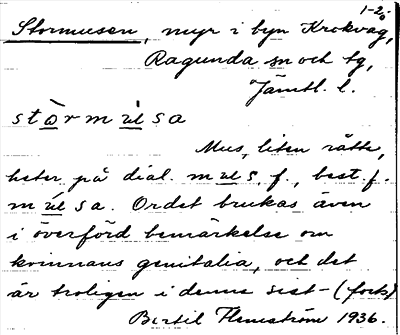 1-2.
Stormusen, myr i byn Krokvåg,
Ragunda sn och tg,
Jämtl. l.
stòrmúsa
Mus, liten råtta,
heter på dial. mus, f., best. f.
músa. Ordet brukas även
i överförd bemärkelse om
kvinnans genitalia, och det
är troligen i denna sist- (forts)
Bertil Flemström 1936.